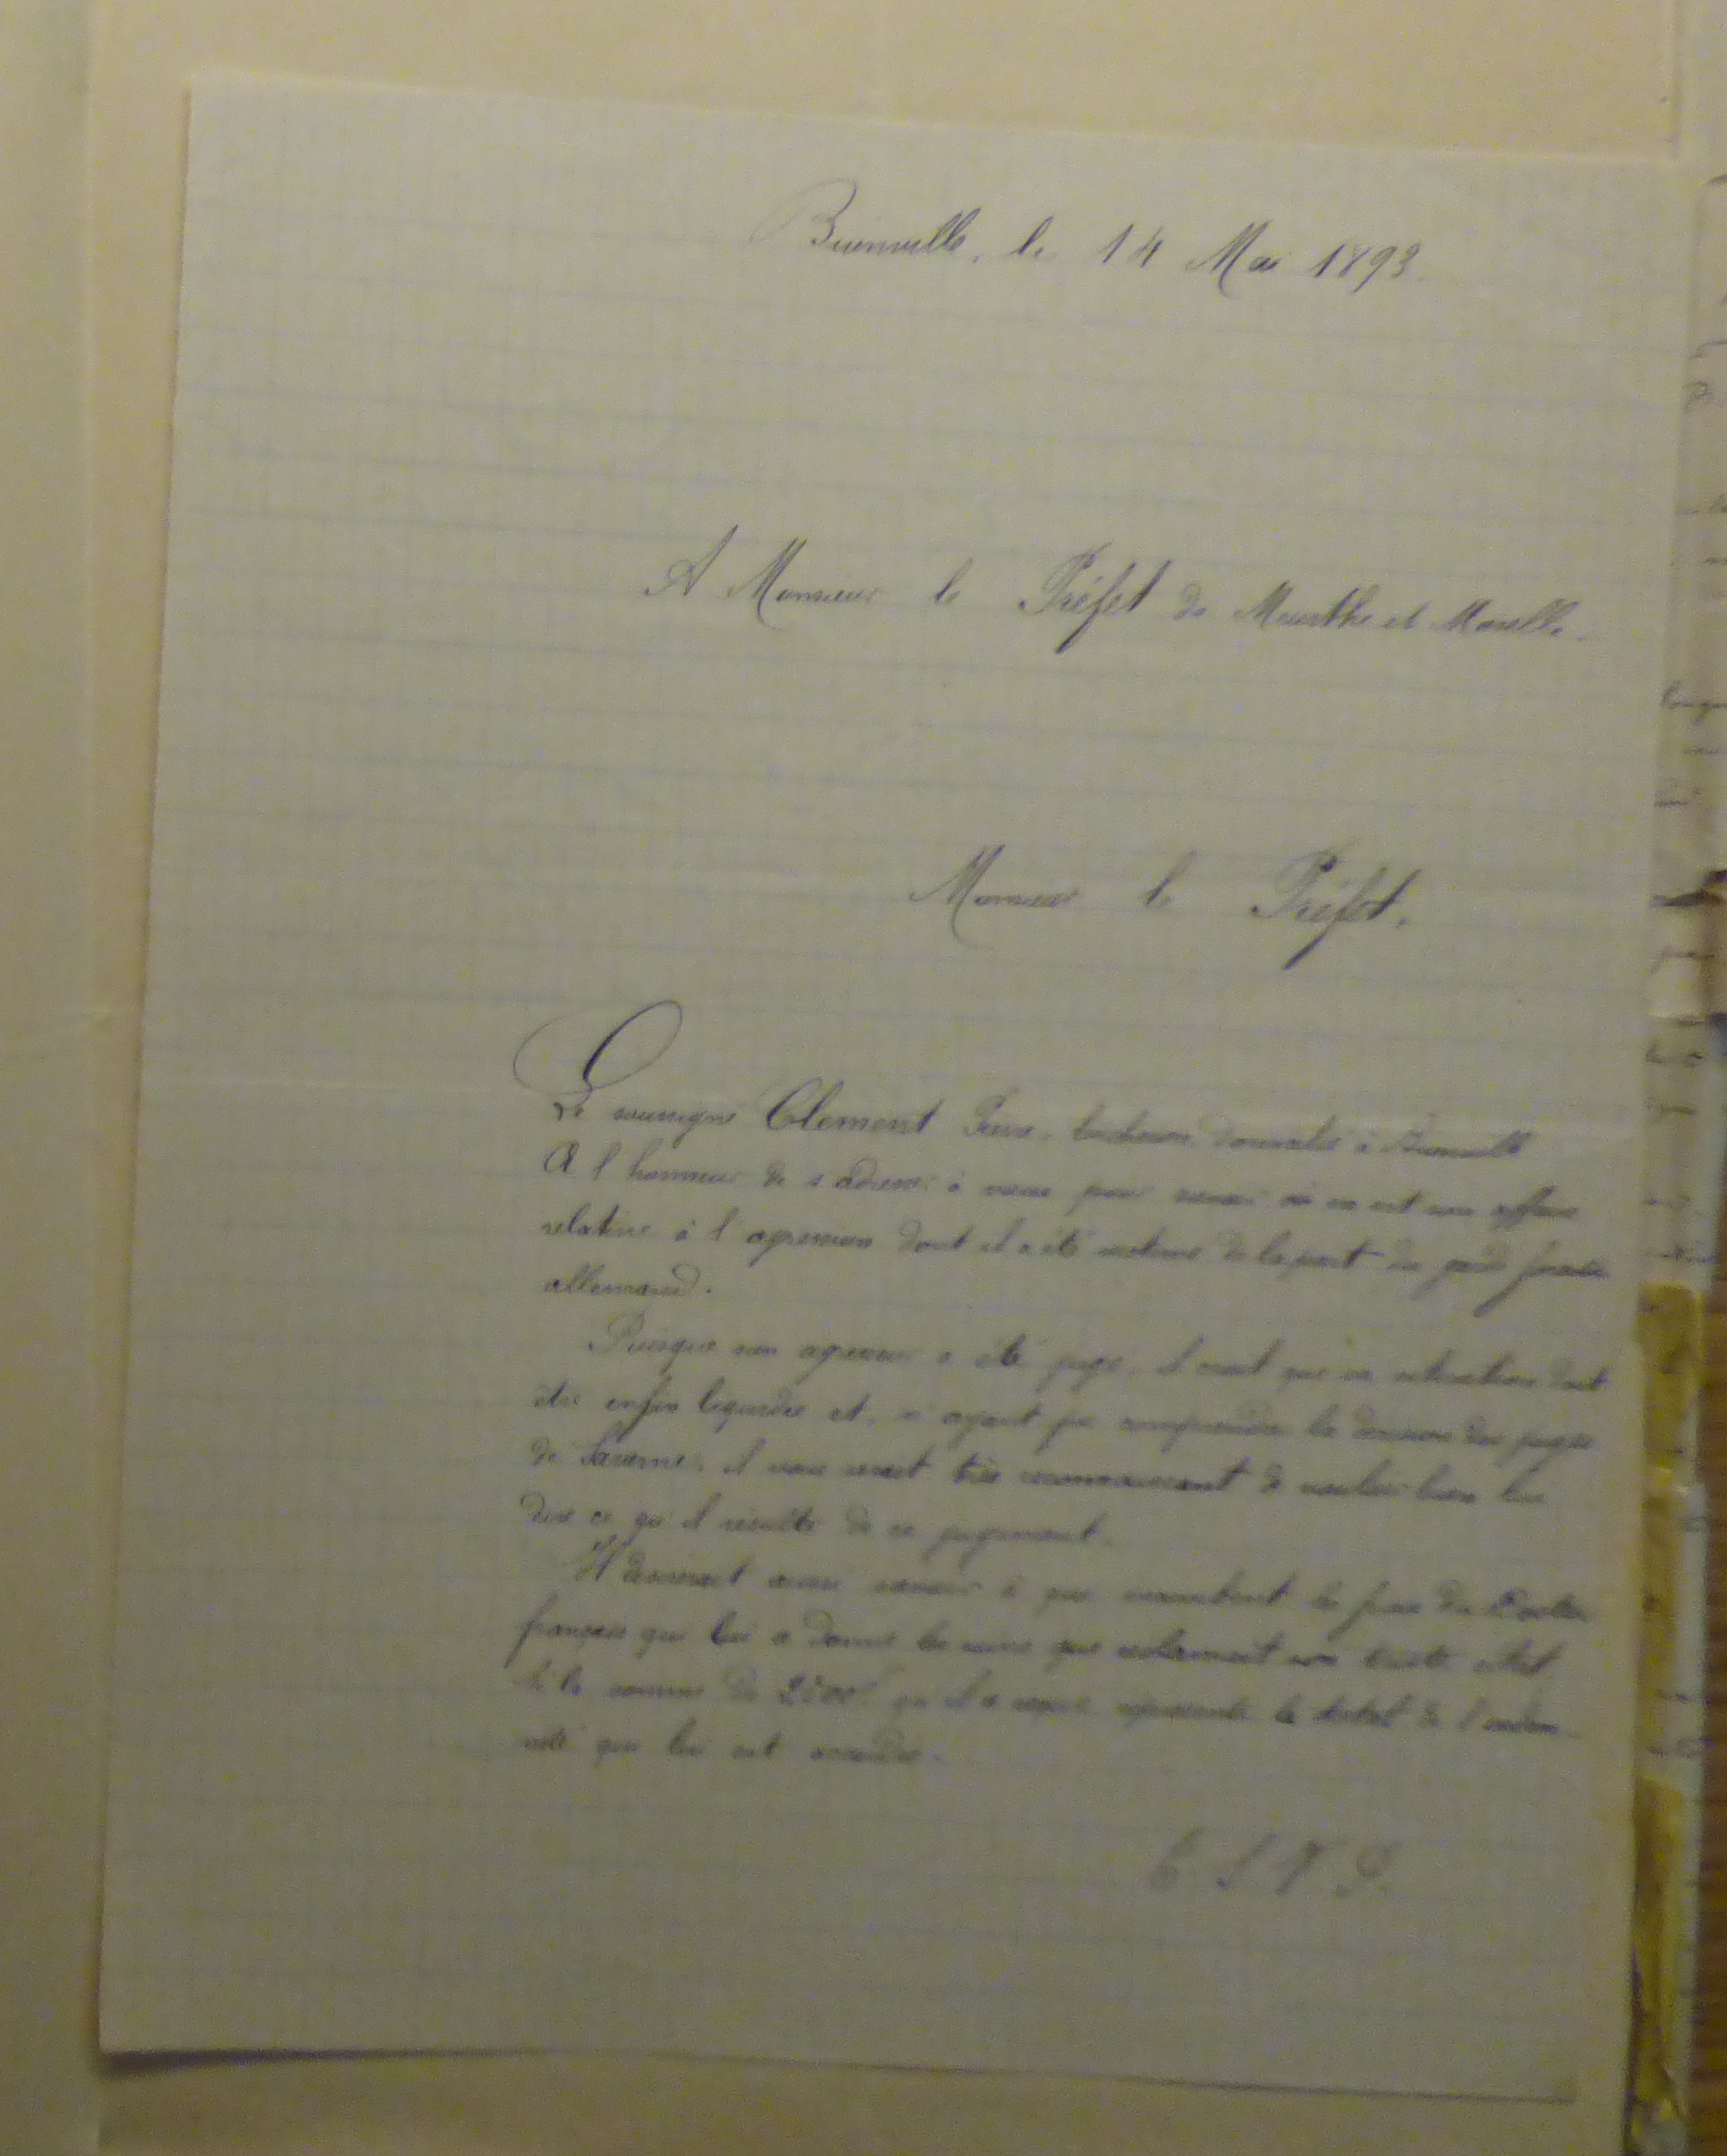 le 14 Mai 1893.
A Monsieur le Préfet de Meurthe et Moselle.
Monsieur le Préfet,
Le soussigné Clement bucheron domicilié à
A l'honneur de s'adresser à vous pour savoir où en est son affaire
relative à l'agression dont il a été victime de la part du garde
allemand.
Puisque son agresseur a été jugé, il croit que sa situation doit
être enfin liquidée et, n'ayant pu comprendre la décision des juges
de Saverne, il vous serait très reconnaissant de vouloir bien lui
dire ce qu'il résulte de ce jugement.
Il desirerait aussi savoir à qui incombent les frais du Docteur
français qui lui a donné les soins que réclamait son état
si la somme de qu'il a reçue représente le total de l'indem
nité qui lui est accordée.
T. S. V. P.